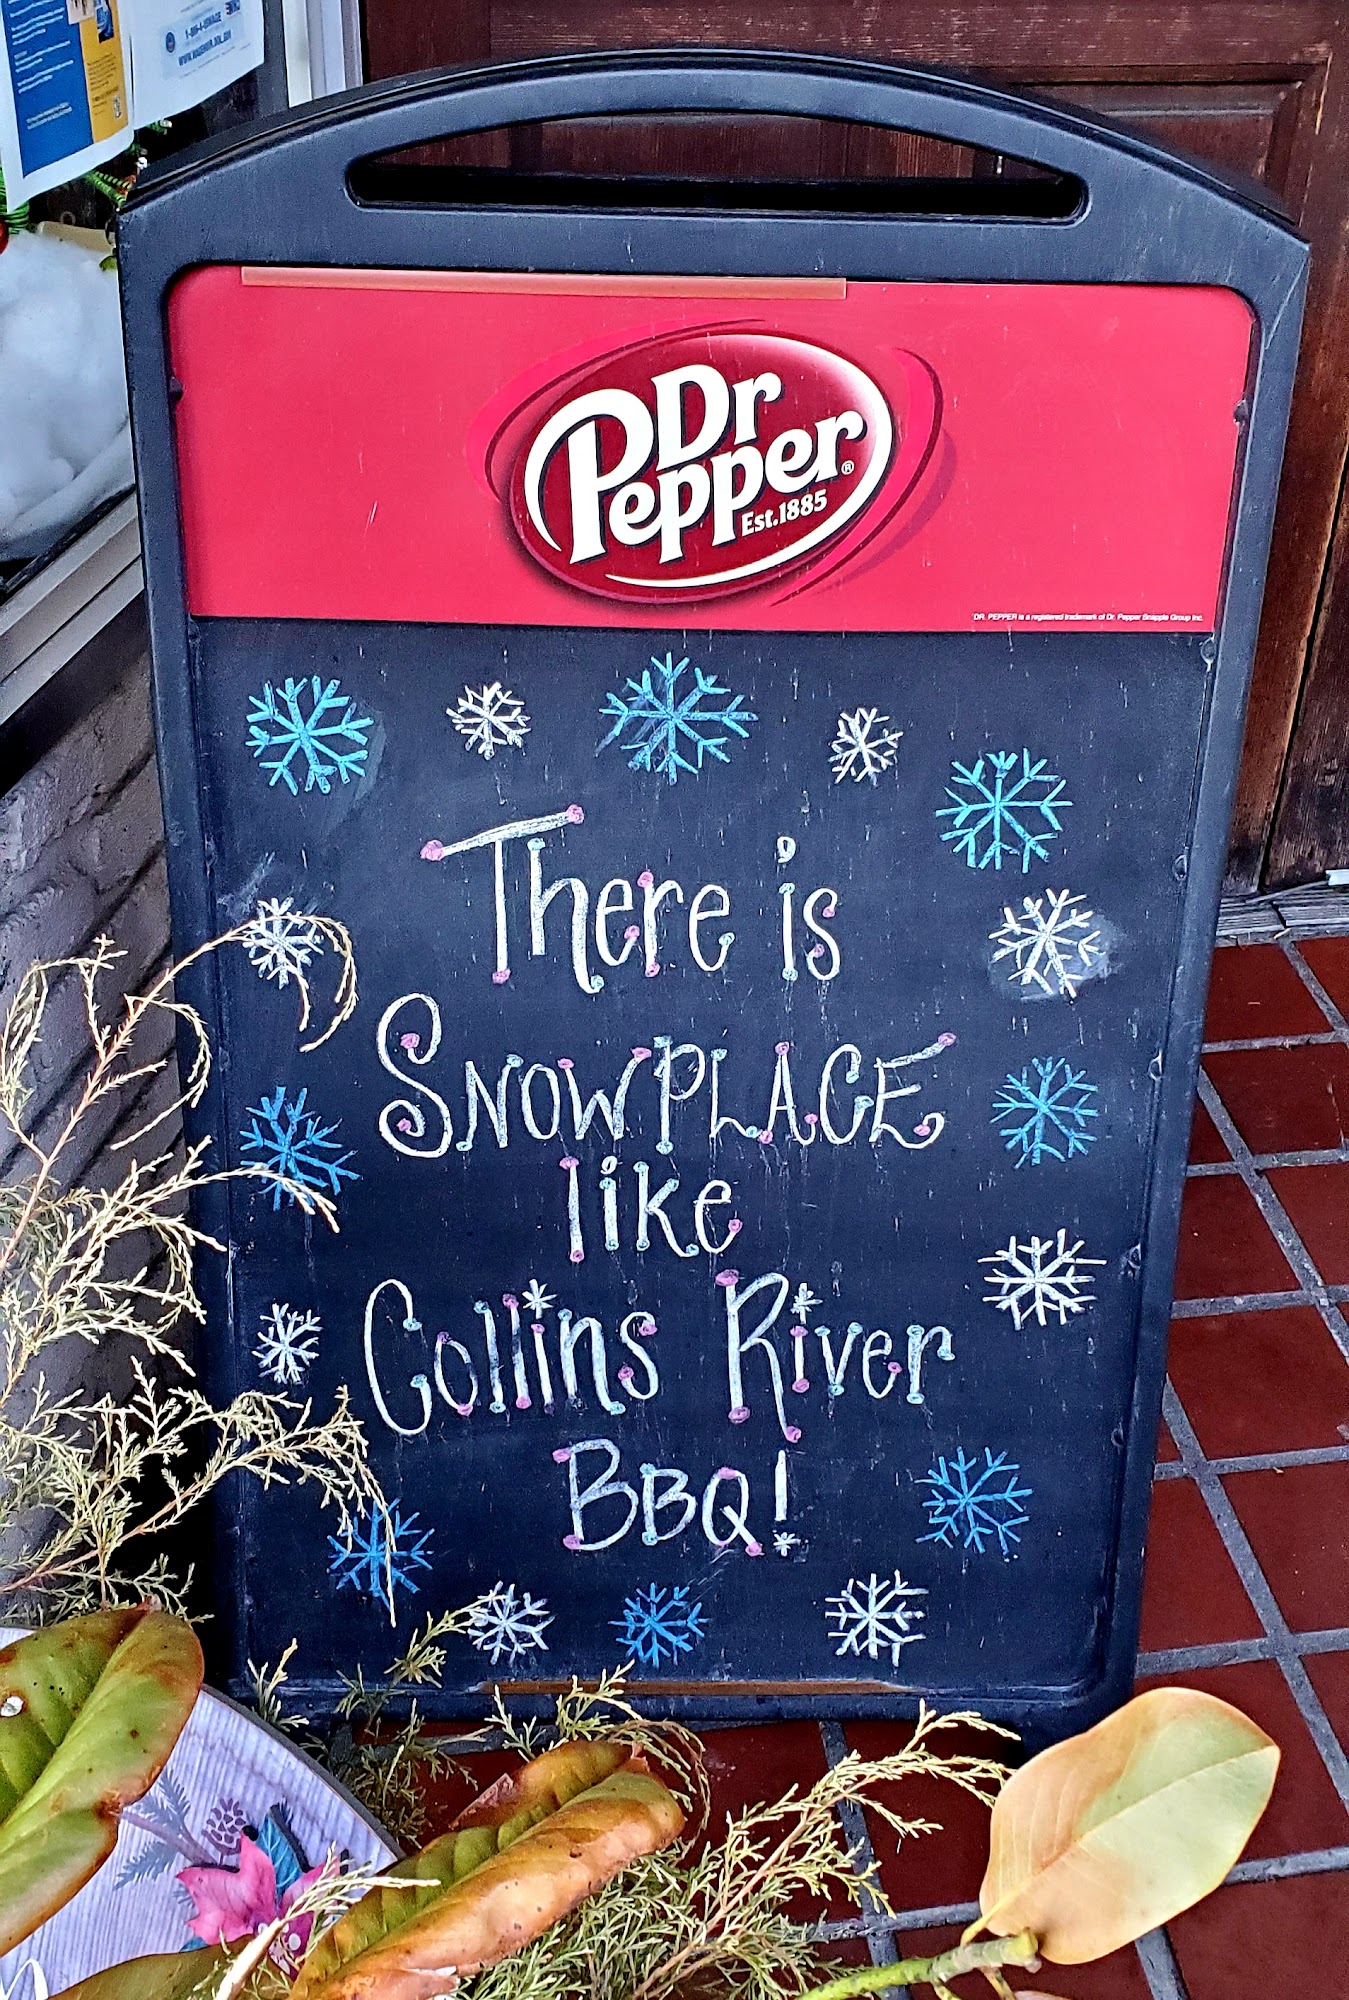 WWW.WAGEHOUR.DOL.GOV
Dr
Pepper®
Est.1885
DR. PEPPER is a registered trademark of Dr. Pepper Snapple Group Inc.
There is
SNOWPLACE
like
Collins River
BBQ!